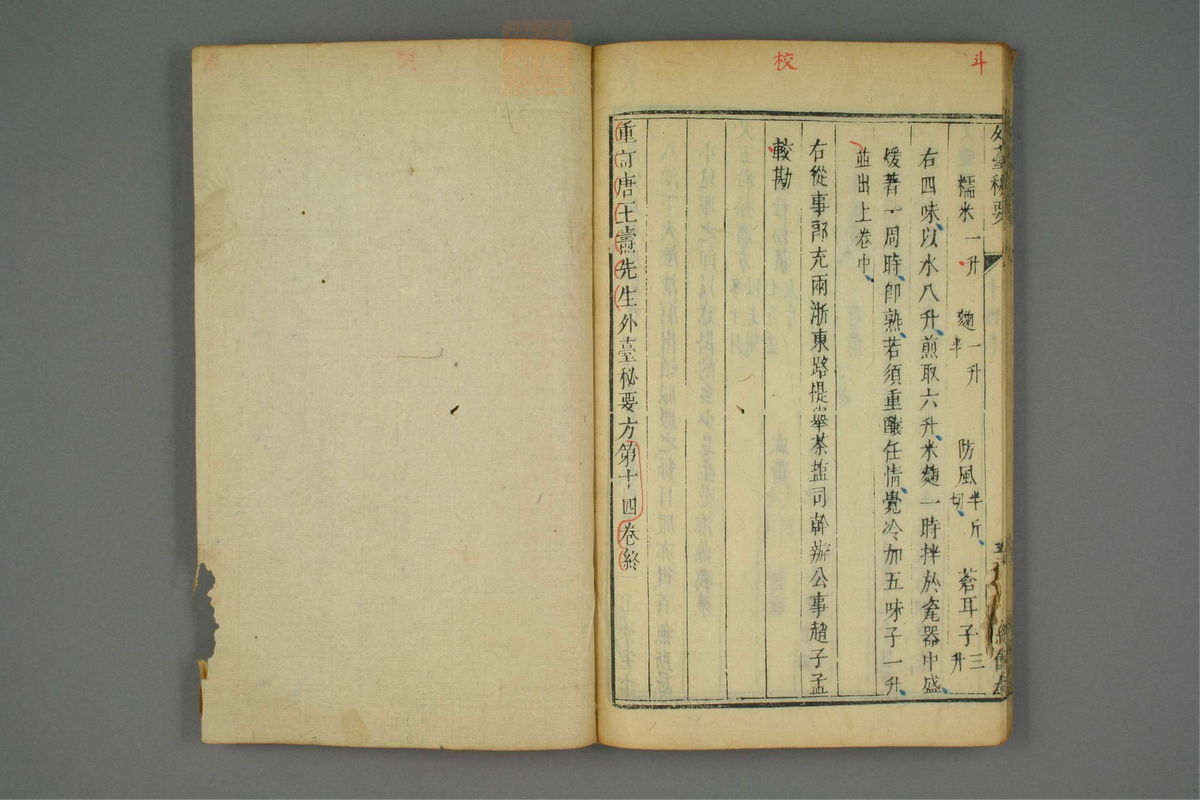 斗
校
外臺秘要
糯米一升 麹一升半 防風半斤切 蒼耳子三升
右四味以水八升煎取六升米麹一時拌於瓷器中盛
煖著一周時即熟若須重釀任情覺冷加五味子一升
並出上卷中
右從事郎充兩浙東路提舉茶鹽司幹辦公事趙子孟
較勘
重訂唐王燾先生外臺秘要方第十四卷終